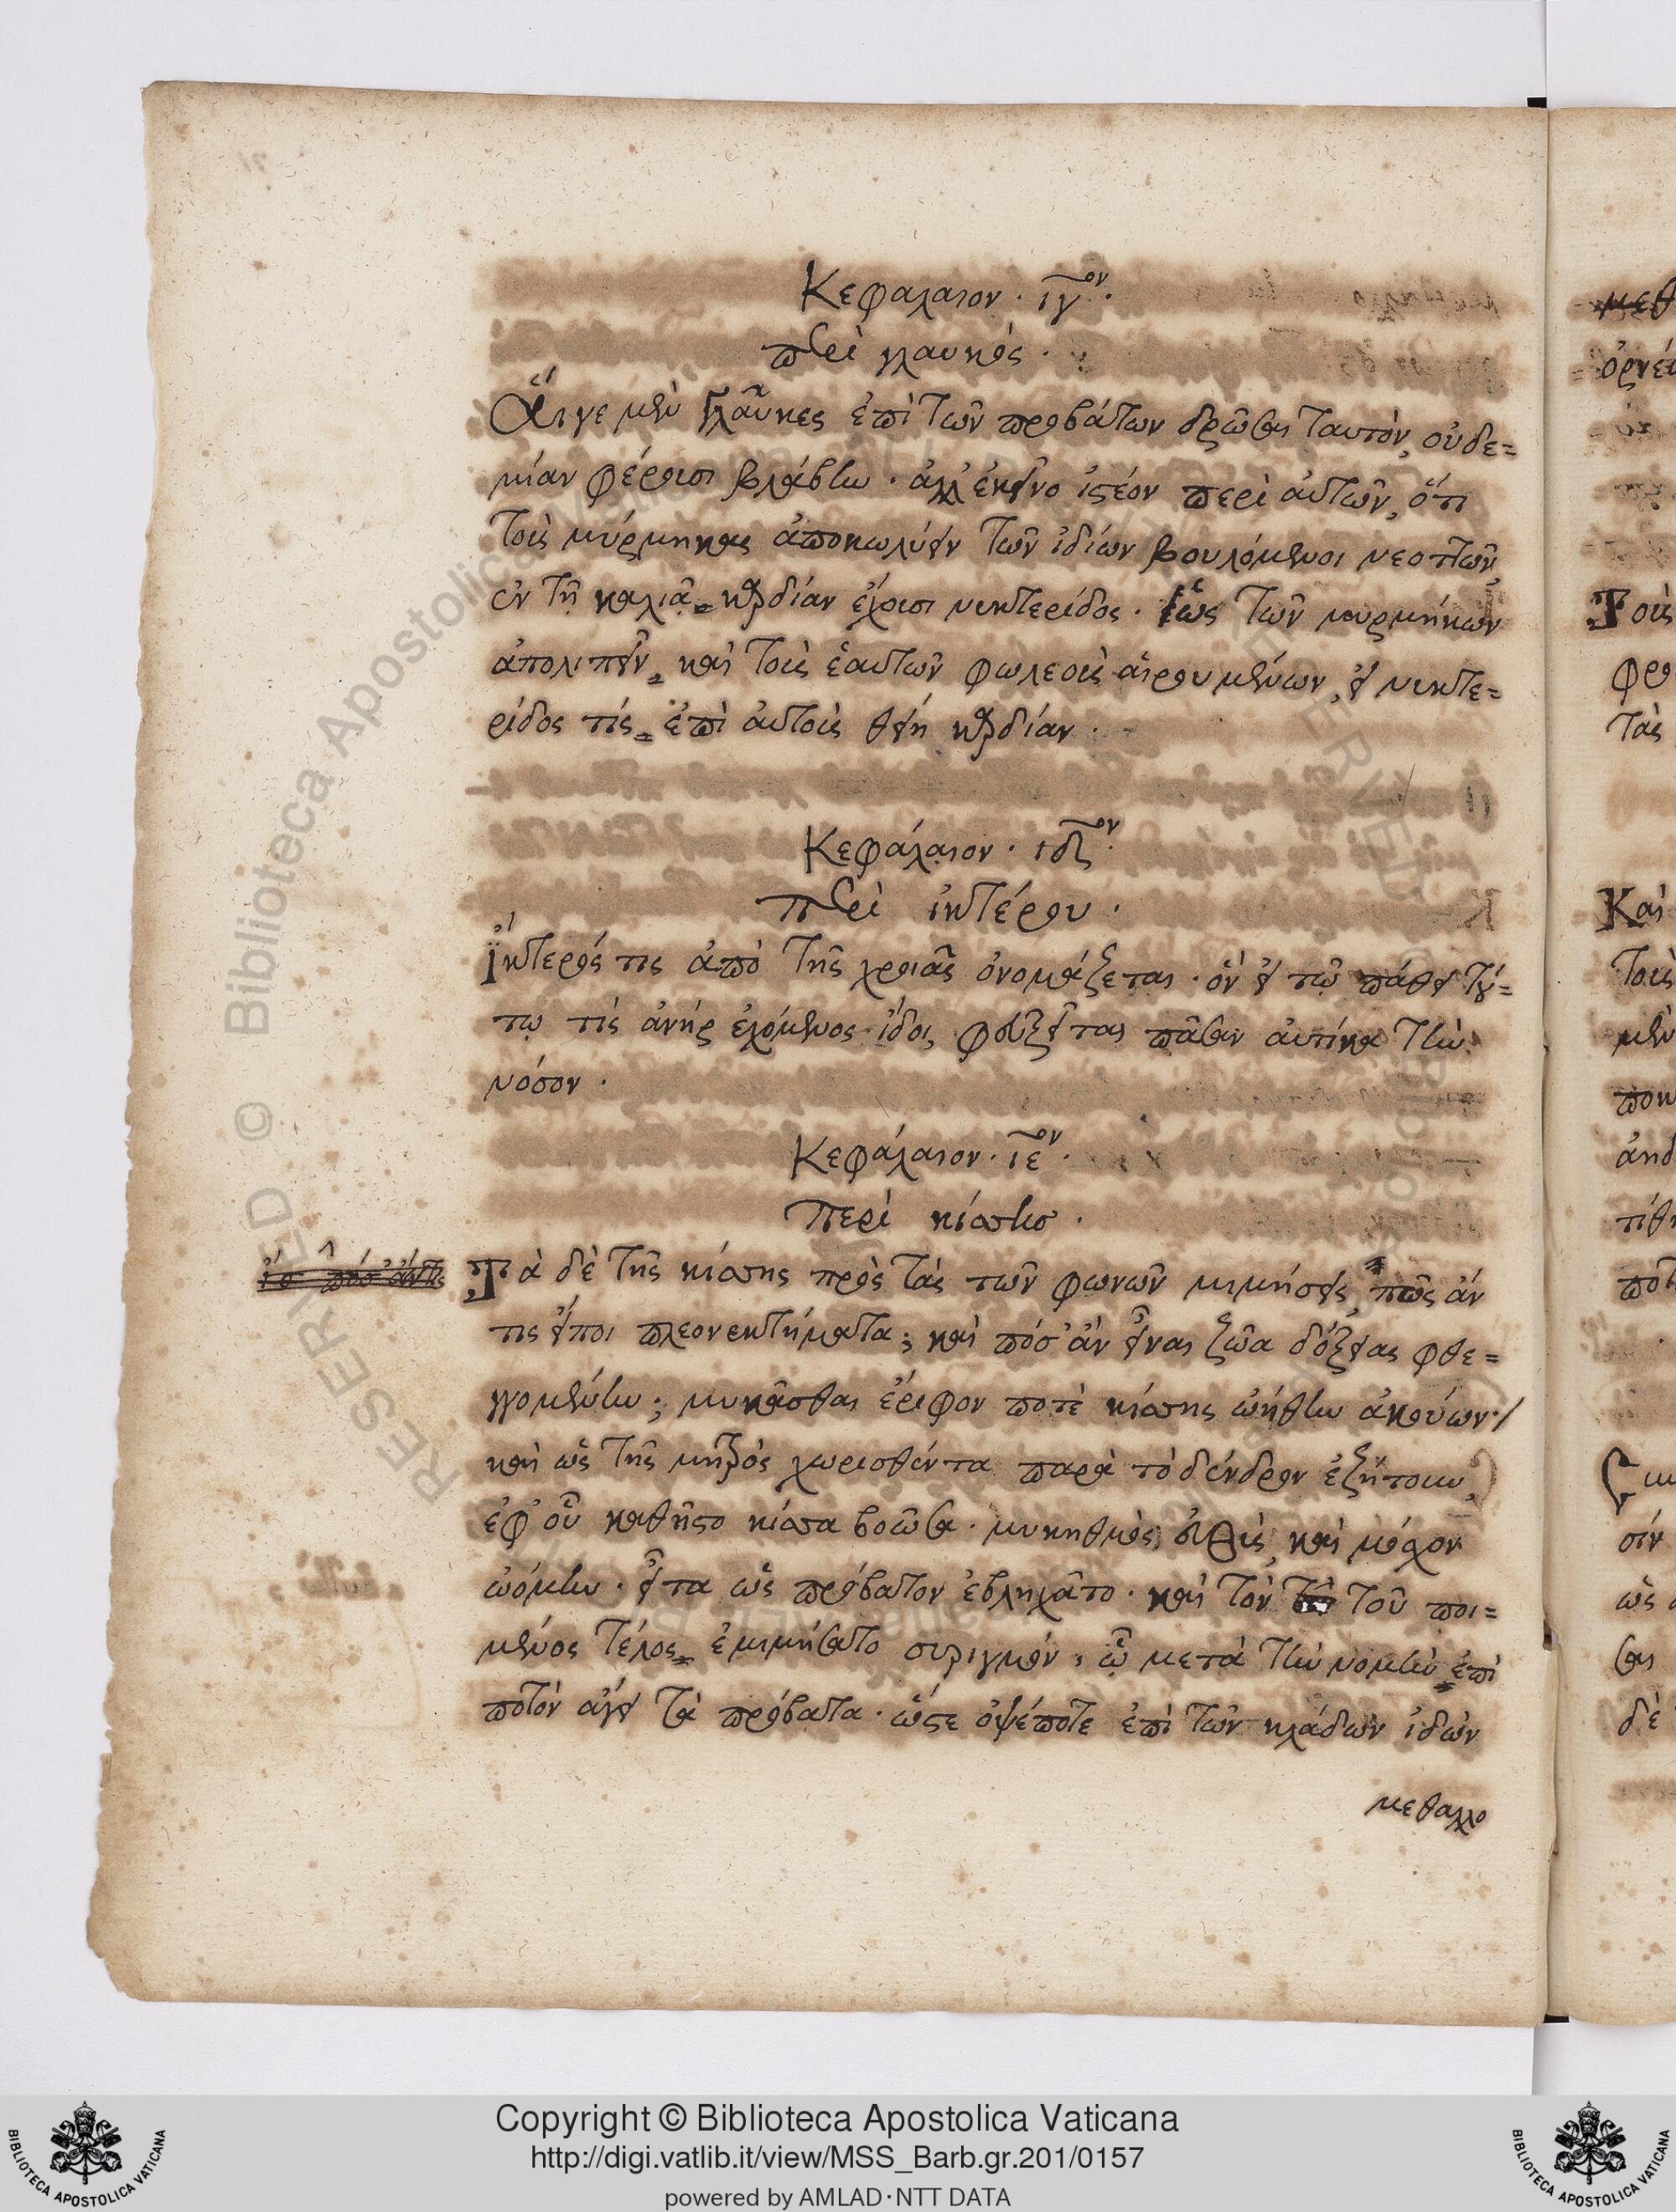 Κεφαλαιον · ιγον ·
περὶ γλαυκός ·
Αἵ γε μὲν γλαῦκες ἐπὶ τῶν προβάτων δρῶσαι ταυτὸν, οὐδε=
μίαν φέρουσι βλάβην · ἀλλ ἐκεῖνο ἰστέον περὶ αὐτῶν, ὅτι
τοὺς μύρμηκας ἀποκωλύειν τῶν ἰδίων βουλόμενοι νεοττῶν
ἐν τῇ καλιᾷ, καρδίαν ἔχουσι νυκτερίδος · ὡς τῶν μυρμήκων
ἀπολιπεῖν, καὶ τοὺς ἑαυτῶν φωλεοὺς αἱρουμένων, εἰ νυκτε=
ρίδος τίς, ἐπὶ αὐτοὺς θείη καρδίαν ·
Κεφάλαιον · ιδον ·
Περὶ ἰκτέρου ·
Ἴκτερός τις ἀπὸ τῆς χροιᾶς ὀνομάζεται · ὃν εἰ τῷ πάθει τού=
τῳ τίς ἀνήρ ἐχόμενος ἴδοι, φεύξεῖται πᾶσαν αὐτίκα τὴν
νόσον ·
Κεφάλαιον · ιεον ·
Περὶ κίσσης ·
Τὰ δὲ τῆς κίσσης πρὸς τὰς τῶν φωνῶν μιμήσεις, πῶς ἄν
τις εἴποι πλεονεκτήματα; καὶ πόσ' ἂν εἶναι ζῶα δόξειας φθε=
γγομένην; μυκᾶσθαι ἔριφον ποτὲ κίσσης ᾠήθην ἀκούων ·
καὶ ὡς τῆς μητρὸς χωρισθέντα παρὰ τὸ δένδρον ἐζήτουν,
ἐφ' οὗ καθῆστο κίσσα βοῶσα · μυκηθμὸς αὖθις καὶ μόσχον
ᾠόμην · εἶτα ὡς πρόβατον ἐβληχᾶτο · καὶ τὸν τοῦ ποι=
μένος τέλος, ἐμιμήσατο συριγμόν, ᾧ μετὰ τὴν νομὴν, ἐπὶ
ποτὸν ἄγει τὰ πρόβατα · ὥστε ὀψέποτε ἐπὶ τῶν κλάδων ἰδὼν
μεθαλλο
Copyright © Biblioteca Apostolica Vaticana
http://digi.vatlib.it/view/MSS_Barb.gr.201/0157
powered by AMLAD·NTT DATA
BIBLIOTECA APOSTOLICA VATICANA
BIBLIOTECA APOSTOLICA VATICANA